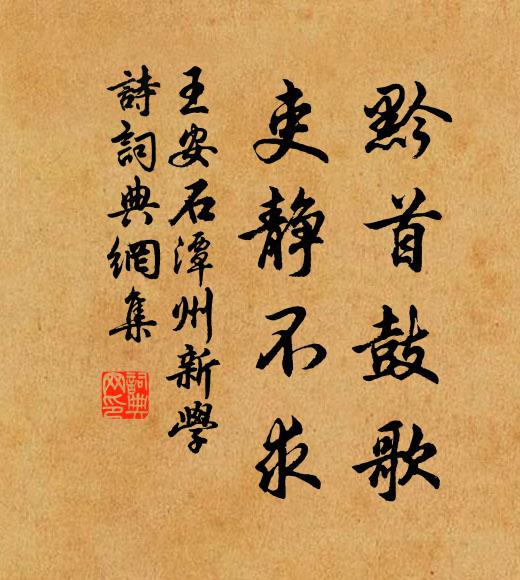 黔首鼓歌
吏静不求
王安石潭州新學
詩詞典網集
詞典
网印